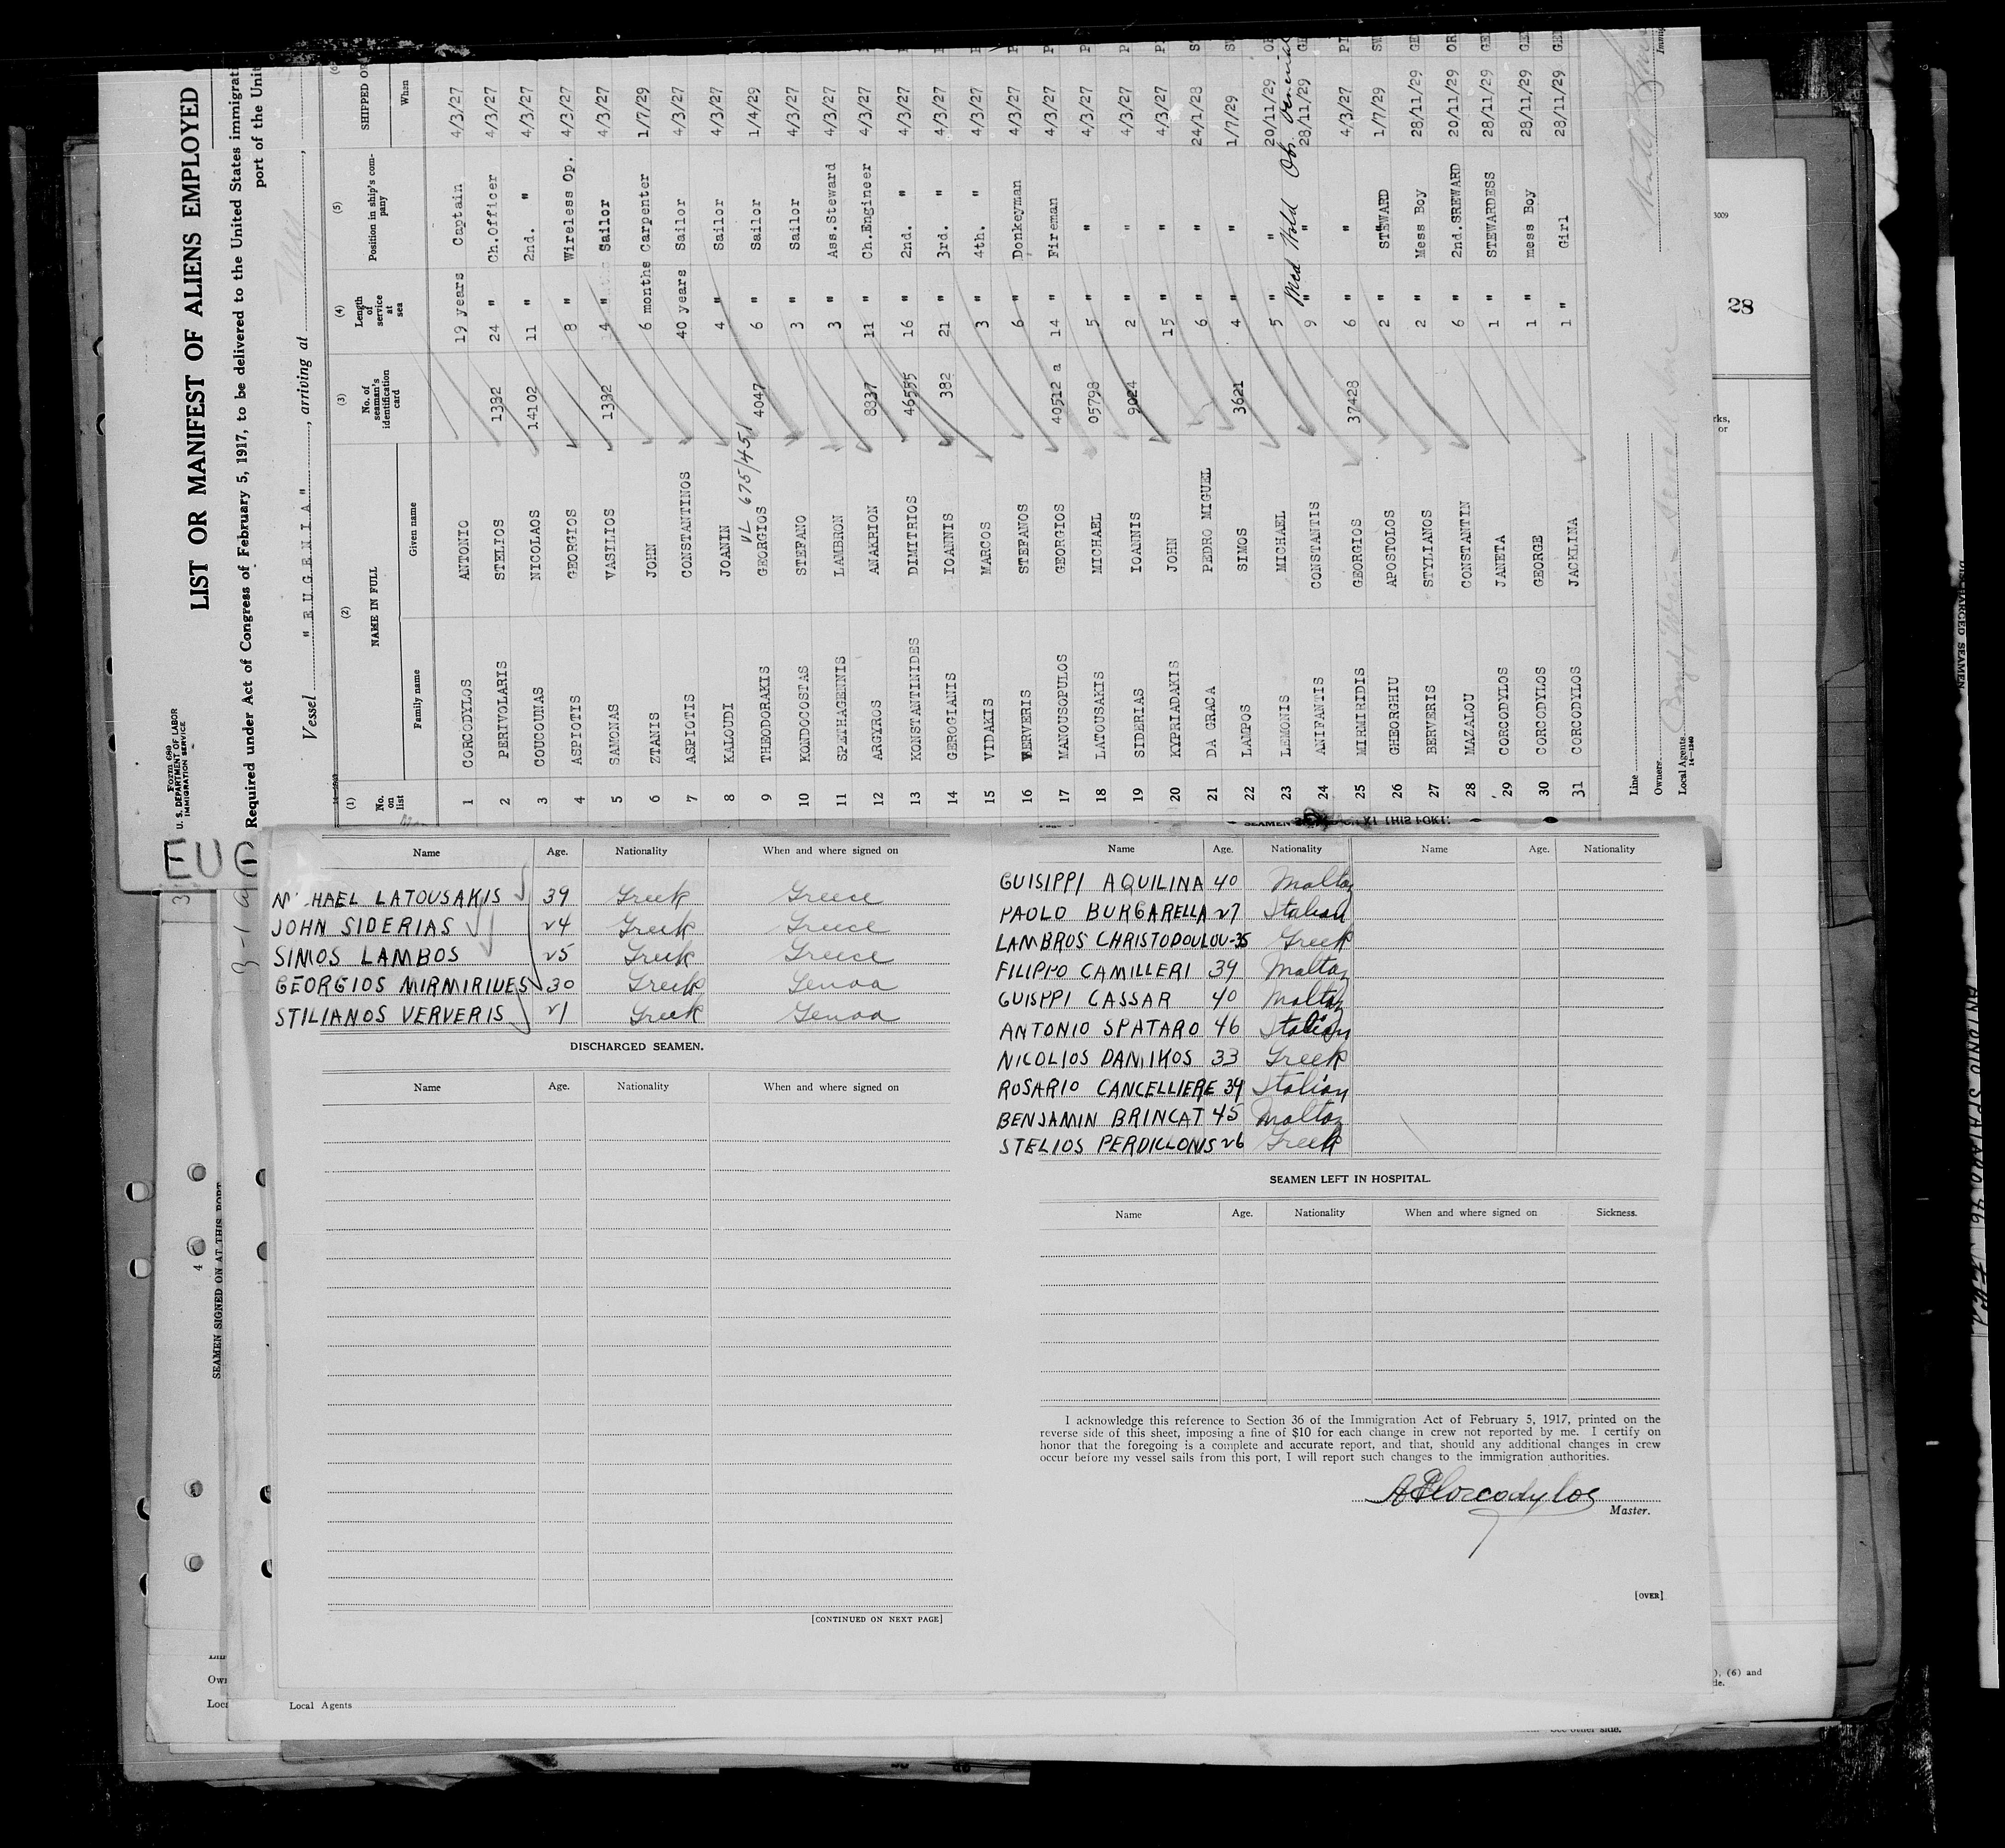 Form 689
U. S. DEPARTMENT OF LABOR
IMMIGRATION SERVICE
LIST OR MANIFEST OF ALIENS EMPLOYED
Required under Act of Congress of February 5, 1917, to be delivered to the United States immigrati
port of the Unit
Vessel "EUGENIA", arriving at
(1) (2) (3) (4) (5)
No. on list NAME IN FULL No. of seaman's identification card Length of service at sea Position in ship's company SHIPPED OR
Family name Given name When
1 CORCODYLOS ANTONIO 19 years Captain 4/3/27
2 PERIVOLARIS STELIOS 1382 24 " Ch.Officer 4/3/27
3 COUCOUNAS NICOLAOS 14102 11 " 2nd. " 4/3/27
4 ASPIOTIS GEORGIOS 8 " Wireless Op. 4/3/27
5 SAMONAS VASILIOS 1382 4 " Sailor 4/3/27
6 ZTANIS JOHN 6 months Carpenter 1/7/29
7 ASPIOTIS CONSTANTINOS 40 years Sailor 4/3/27
8 KALOUDI JOANIN 4 " Sailor 4/3/27
VL 675/451
9 THEODORAKIS GEORGIOS 4047 6 " Sailor 1/4/29
10 KONDOCOSTAS STEFANO 3 " Sailor 4/3/27
11 SPETHAGENINIS LAMBRON 3 " Ass.Steward 4/3/27
12 ARGYROS ANAKRION 8837 11 " Ch.Engineer 4/3/27
13 KONSTANTINIDES DIMITRIOS 46555 16 " 2nd. " 4/3/27
14 GEROGIANIS IOANNIS 382 21 " 3rd. " 4/3/27
15 VIDAKIS MARCOS 3 " 4th. " 4/3/27
16 VERVERIS STEFANOS 6 " Donkeyman 4/3/27
17 MANOUSOPULOS GEORGIOS 40512 a 14 " Fireman 4/3/27
18 LATOUSAKIS MICHAEL 05798 5 " " 4/3/27
19 SIDERIAS IOANNIS 9024 2 " " 4/3/27
20 KYPRIADAKIS JOHN 15 " " 4/3/27
21 DA GRACA PEDRO MIGUEL 6 " " 24/1/28
22 LAMPOS SIMOS 3621 4 " " 1/7/29
23 LEMONIS MICHAEL 5 " " 20/11/29
Med Hold Obs.
24 ANIFANTIS CONSTANTIS 9 " " 28/11/29
25 MIRMIRIDIS GEORGIOS 37428 6 " " 4/3/27
26 GHEORGHIU APOSTOLOS 2 " STEWARD 1/7/29
27 BERVERIS STYLIANOS 2 " Mess Boy 28/11/29
28 MAZALOU CONSTANTIN 6 " 2nd.SREWARD 20/11/29
29 CORCODYLOS JANETA 1 " STEWARDESS 28/11/29
30 CORCODYLOS GEORGE 1 " mess Boy 28/11/29
31 CORCODYLOS JACKLINA 1 " Girl 28/11/29
Line
Owners
Local Agents
14—1240
28
EUG
Name Age. Nationality When and where signed on
MICHAEL LATOUSAKIS 39 Greek Greece
JOHN SIDERIAS 24 Greek Greece
SIMOS LAMBOS 25 Greek Greece
GEORGIOS MIRMIRIDES 30 Greek Genoa
STILIANOS VERVERIS 21 Greek Genoa
DISCHARGED SEAMEN.
Name Age. Nationality When and where signed on
[CONTINUED ON NEXT PAGE]
Name Age. Nationality Name Age. Nationality
GUISIPPI AQUILINA 40 Maltaz
PAOLO BURGARELLA 27 Italian
LAMBROS CHRISTODOULOU-35 Greek
FILIPPO CAMILLERI 39 Maltaz
GUISPPI CASSAR 40 Maltaz
ANTONIO SPATARO 46 Italian
NICOLIOS DANIKOS 33 Greek
ROSARIO CANCELLIERE 39 Italian
BENJAMIN BRINCAT 45 Maltaz
STELIOS PERDILLONIS 26 Greek
SEAMEN LEFT IN HOSPITAL.
Name Age. Nationality When and where signed on Sickness.
I acknowledge this reference to Section 36 of the Immigration Act of February 5, 1917, printed on the
reverse side of this sheet, imposing a fine of $10 for each change in crew not reported by me. I certify on
honor that the foregoing is a complete and accurate report, and that, should any additional changes in crew
occur before my vessel sails from this port, I will report such changes to the immigration authorities.
Corcodylos
Master.
[OVER]
SEAMEN SIGNED ON AT THIS PORT
Local Agents
), (6) and
See other side.
DISCHARGED SEAMEN
ANTONIO SPATARO 36